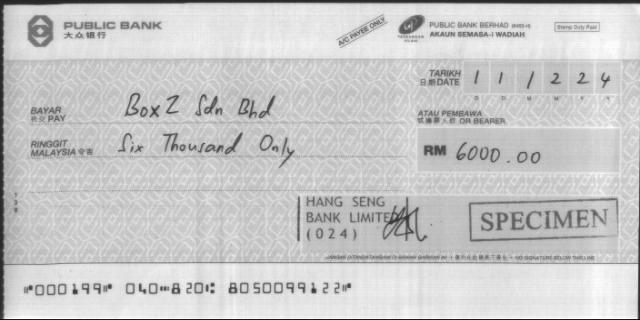 PUBLIC BANK
大众银行
A/C PAYEE ONLY
PUBLIC BANK BERHAD
AKAUN SEMASA-I WADIAH
Stamp Duty Paid
TARIKH
日期 DATE
1 1 1 2 2 4
D D M M Y Y
BAYAR
PAY
Box2 Sdn Bhd
ATAU PEMBAWA
OR BEARER
RINGGIT
MALAYSIA 令吉
Six Thousand Only
RM 6000.00
HANG SENG
BANK LIMITED
(024)
SPECIMEN
NO SIGNATURE BELOW THIS LINE
⑈000199⑈ 040⑉820⑆ 8050099122⑈